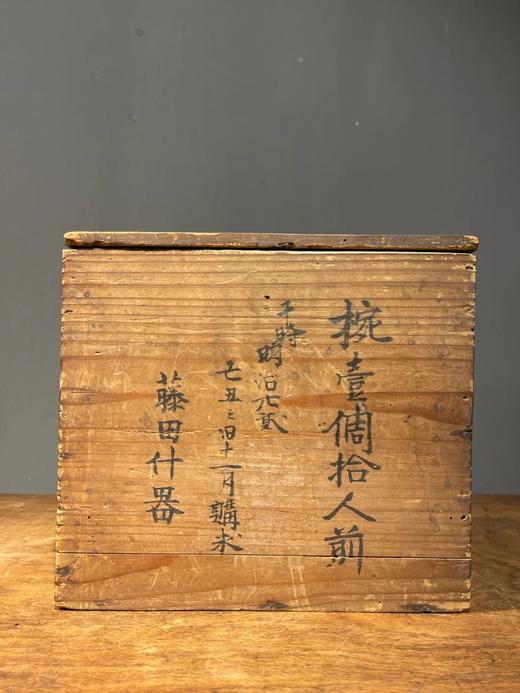 椀壹個拾人前
于時明治廿貳
己丑之旧十一月購求
藤田什器